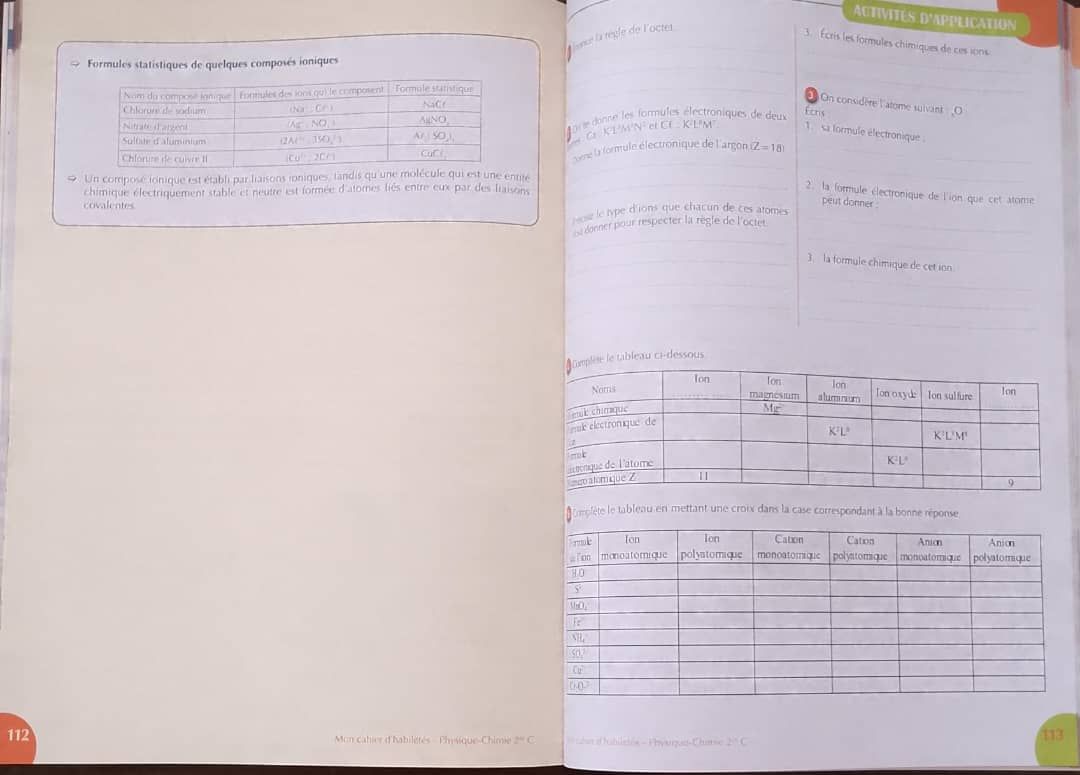 ⇨ Formules statistiques de quelques composés ioniques
Nom du composé ionique Formules des ions qui le composent Formule statistique
Chlorure de sodium (Na⁺ ; Cℓ⁻) NaCℓ
Nitrate d'argent (Ag⁺ ; NO₃⁻) AgNO₃
Sulfate d'aluminium (2Aℓ³⁺ ; 3SO₄²⁻) Aℓ₂(SO₄)₃
Chlorure de cuivre II (Cu²⁺ ; 2Cℓ⁻) CuCℓ₂
⇨ Un composé ionique est établi par liaisons ioniques, tandis qu'une molécule qui est une entité
chimique électriquement stable et neutre est formée d'atomes liés entre eux par des liaisons
covalentes.
112
Mon cahier d'habiletés - Physique-Chimie 2ⁿᵈᵉ C
ACTIVITÉS D'APPLICATION
la règle de l'octet.
donne les formules électroniques de deux
Ca : K²L⁸M⁸N² et Cℓ : K²L⁸M⁷.
la formule électronique de l'argon (Z = 18)
le type d'ions que chacun de ces atomes
donner pour respecter la règle de l'octet.
3. Écris les formules chimiques de ces ions.
3 On considère l'atome suivant : ₈O
Écris :
1. sa formule électronique ;
2. la formule électronique de l'ion que cet atome
peut donner ;
3. la formule chimique de cet ion.
Complète le tableau ci-dessous.
Noms Ion Ion magnésium Ion aluminium Ion oxyde Ion sulfure Ion
chimique Mg²⁺
électronique de K²L⁸ K²L⁸M⁸
électronique de l'atome K²L⁶
atomique Z 11 9
Complète le tableau en mettant une croix dans la case correspondant à la bonne réponse
Formule Ion Ion Cation Cation Anion Anion
de l'ion monoatomique polyatomique monoatomique polyatomique monoatomique polyatomique
H₃O⁺
S²⁻
MnO₄⁻
NH₄⁺
cahier d'habiletés - Physique-Chimie 2ⁿᵈᵉ C
113